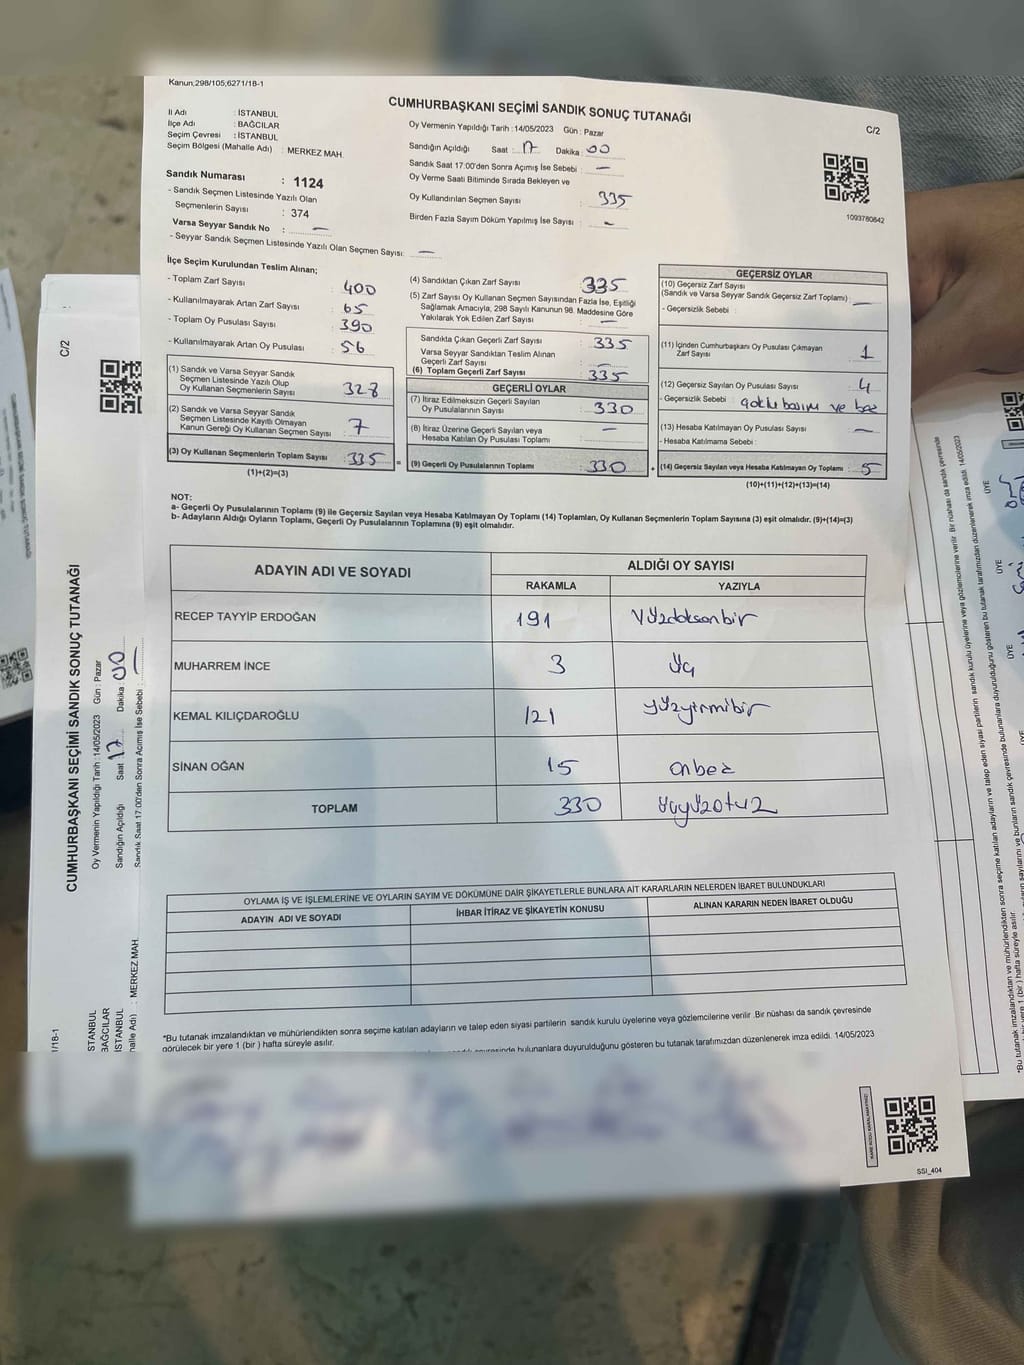 Kanun;298/105;6271/18-1
CUMHURBAŞKANI SEÇİMİ SANDIK SONUÇ TUTANAĞI
C/2
İl Adı : İSTANBUL
İlçe Adı : BAĞCILAR
Seçim Çevresi : İSTANBUL
Seçim Bölgesi (Mahalle Adı) : MERKEZ MAH.
Oy Vermenin Yapıldığı Tarih :14/05/2023 Gün : Pazar
Sandığın Açıldığı Saat : 17 Dakika : 00
Sandık Saat 17:00'den Sonra Açımış İse Sebebi : —
Oy Verme Saati Bitiminde Sırada Bekleyen ve
Oy Kullandırılan Seçmen Sayısı : 335
Birden Fazla Sayım Döküm Yapılmış İse Sayısı : —
1093780842
Sandık Numarası : 1124
- Sandık Seçmen Listesinde Yazılı Olan
Seçmenlerin Sayısı : 374
Varsa Seyyar Sandık No : —
- Seyyar Sandık Seçmen Listesinde Yazılı Olan Seçmen Sayısı: —
İlçe Seçim Kurulundan Teslim Alınan;
- Toplam Zarf Sayısı : 400
- Kullanılmayarak Artan Zarf Sayısı : 65
- Toplam Oy Pusulası Sayısı : 390
- Kullanılmayarak Artan Oy Pusulası : 56
(1) Sandık ve Varsa Seyyar Sandık
Seçmen Listesinde Yazılı Olup
Oy Kullanan Seçmenlerin Sayısı : 328
(2) Sandık ve Varsa Seyyar Sandık
Seçmen Listesinde Kayıtlı Olmayan
Kanun Gereği Oy Kullanan Seçmen Sayısı : 7
(3) Oy Kullanan Seçmenlerin Toplam Sayısı : 335
(1)+(2)=(3)
(4) Sandıktan Çıkan Zarf Sayısı : 335
(5) Zarf Sayısı Oy Kullanan Seçmen Sayısından Fazla İse, Eşitliği
Sağlamak Amacıyla, 298 Sayılı Kanunun 98. Maddesine Göre
Yakılarak Yok Edilen Zarf Sayısı : —
Sandıkta Çıkan Geçerli Zarf Sayısı : 335
Varsa Seyyar Sandıktan Teslim Alınan
Geçerli Zarf Sayısı : —
(6) Toplam Geçerli Zarf Sayısı : 335
GEÇERLİ OYLAR
(7) İtiraz Edilmeksizin Geçerli Sayılan
Oy Pusulalarının Sayısı : 330
(8) İtiraz Üzerine Geçerli Sayılan veya
Hesaba Katılan Oy Pusulası Toplamı : —
= (9) Geçerli Oy Pusulalarının Toplamı : 330
GEÇERSİZ OYLAR
(10) Geçersiz Zarf Sayısı
(Sandık ve Varsa Seyyar Sandık Geçersiz Zarf Toplamı) : —
- Geçersizlik Sebebi :
(11) İçinden Cumhurbaşkanı Oy Pusulası Çıkmayan
Zarf Sayısı : 1
(12) Geçersiz Sayılan Oy Pusulası Sayısı : 4
- Geçersizlik Sebebi : ve
(13) Hesaba Katılmayan Oy Pusulası Sayısı : —
- Hesaba Katılmama Sebebi :
+ (14) Geçersiz Sayılan veya Hesaba Katılmayan Oy Toplamı : 5
(10)+(11)+(12)+(13)=(14)
NOT:
a- Geçerli Oy Pusulalarının Toplamı (9) ile Geçersiz Sayılan veya Hesaba Katılmayan Oy Toplamı (14) Toplamları, Oy Kullanan Seçmenlerin Toplam Sayısına (3) eşit olmalıdır. (9)+(14)=(3)
b- Adayların Aldığı Oyların Toplamı, Geçerli Oy Pusulalarının Toplamına (9) eşit olmalıdır.
ADAYIN ADI VE SOYADI
ALDIĞI OY SAYISI
RAKAMLA YAZIYLA
RECEP TAYYİP ERDOĞAN 191 Yüzdoksanbir
MUHARREM İNCE 3 Üç
KEMAL KILIÇDAROĞLU 121 yüzyirmibir
SİNAN OĞAN 15 onbeş
TOPLAM 330 üçyüzotuz
OYLAMA İŞ VE İŞLEMLERİNE VE OYLARIN SAYIM VE DÖKÜMÜNE DAİR ŞİKAYETLERLE BUNLARA AİT KARARLARIN NELERDEN İBARET BULUNDUKLARI
ADAYIN ADI VE SOYADI
İHBAR İTİRAZ VE ŞİKAYETİN KONUSU
ALINAN KARARIN NEDEN İBARET OLDUĞU
*Bu tutanak imzalandıktan ve mühürlendikten sonra seçime katılan adayların ve talep eden siyasi partilerin sandık kurulu üyelerine veya gözlemcilerine verilir .Bir nüshası da sandık çevresinde
görülecek bir yere 1 (bir ) hafta süreyle asılır.
bulunanlara duyurulduğunu gösteren bu tutanak tarafımızdan düzenlenerek imza edildi. 14/05/2023
SSİ_404
C/2
CUMHURBAŞKANI SEÇİMİ SANDIK SONUÇ TUTANAĞI
Oy Vermenin Yapıldığı Tarih :14/05/2023 Gün : Pazar
Sandığın Açıldığı Saat : 17 Dakika : 00
Sandık Saat 17:00'den Sonra Açımış İse Sebebi :
/18-1
STANBUL
BAĞCILAR
İSTANBUL
halle Adı) : MERKEZ MAH.
ÜYE
ÜYE
ÜYE